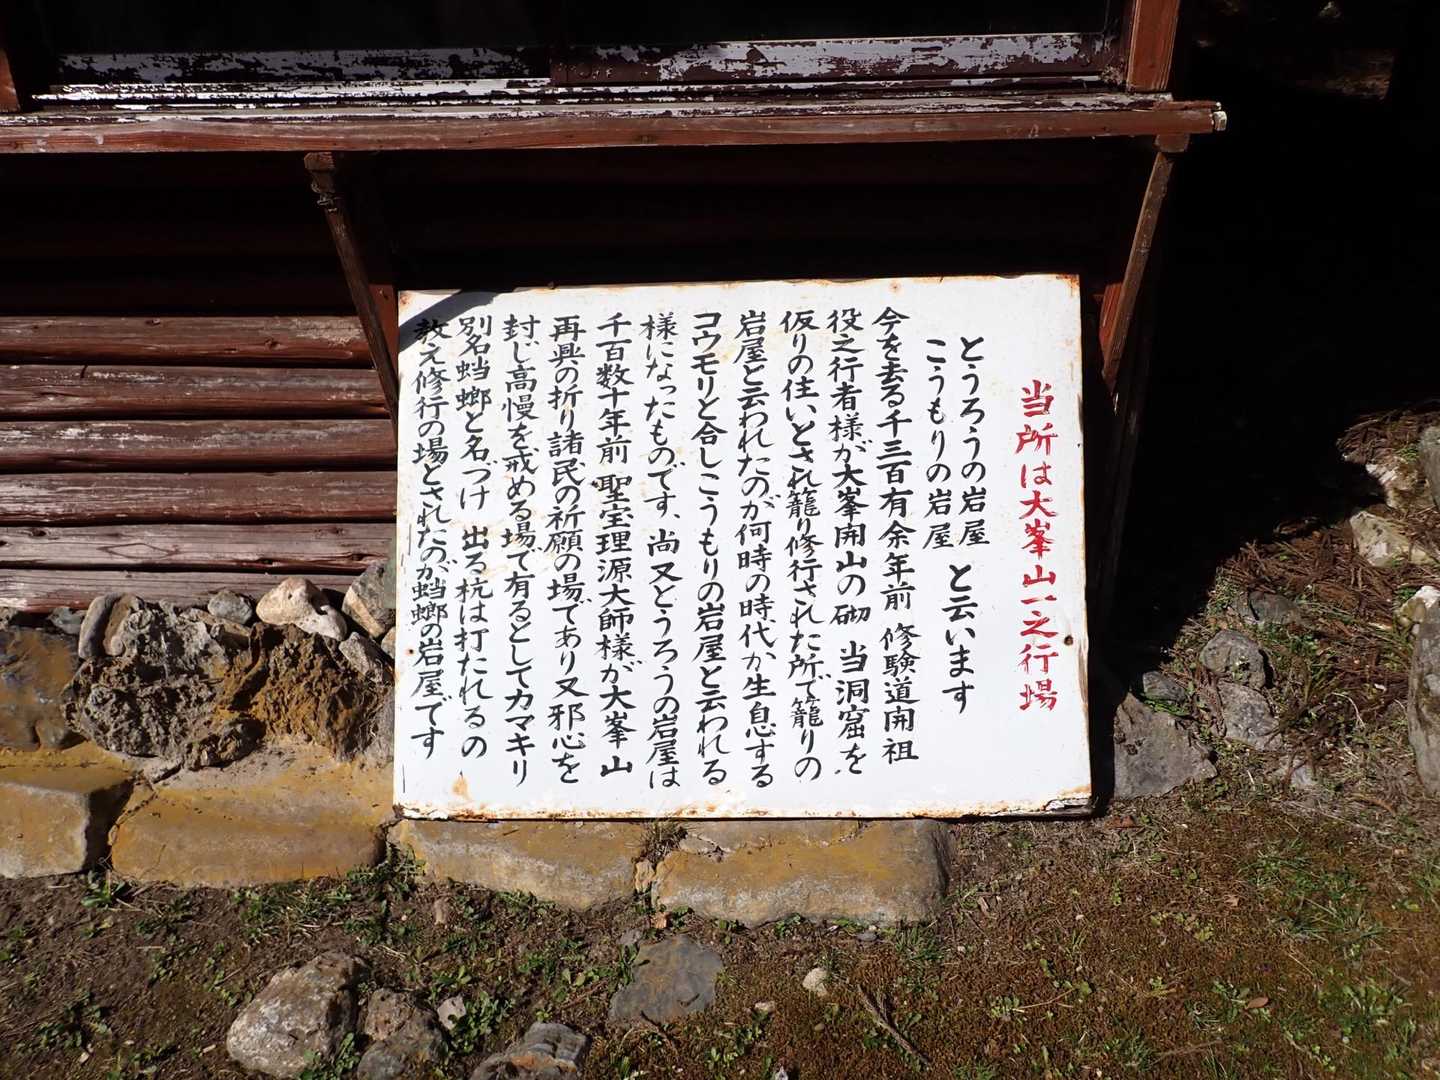 当所は大峯山一之行場
とうろうの岩屋
こうもりの岩屋
と云います
今を去る千三百有余年前 修験道開祖
役之行者様が大峯開山の砌 当洞窟を
仮りの住いとされ籠り修行された所で籠りの
岩屋と云われたのが何時の時代か生息する
コウモリと合しこうもりの岩屋と云われる
様になったものです、尚又とうろうの岩屋は
千百数十年前 聖宝理源大師様が大峯山
再興の折り諸民の祈願の場であり又邪心を
封じ高慢を戒める場で有るとしてカマキリ
別名蟷螂と名づけ 出る杭は打たれるの
教え修行の場とされたのが蟷螂の岩屋です